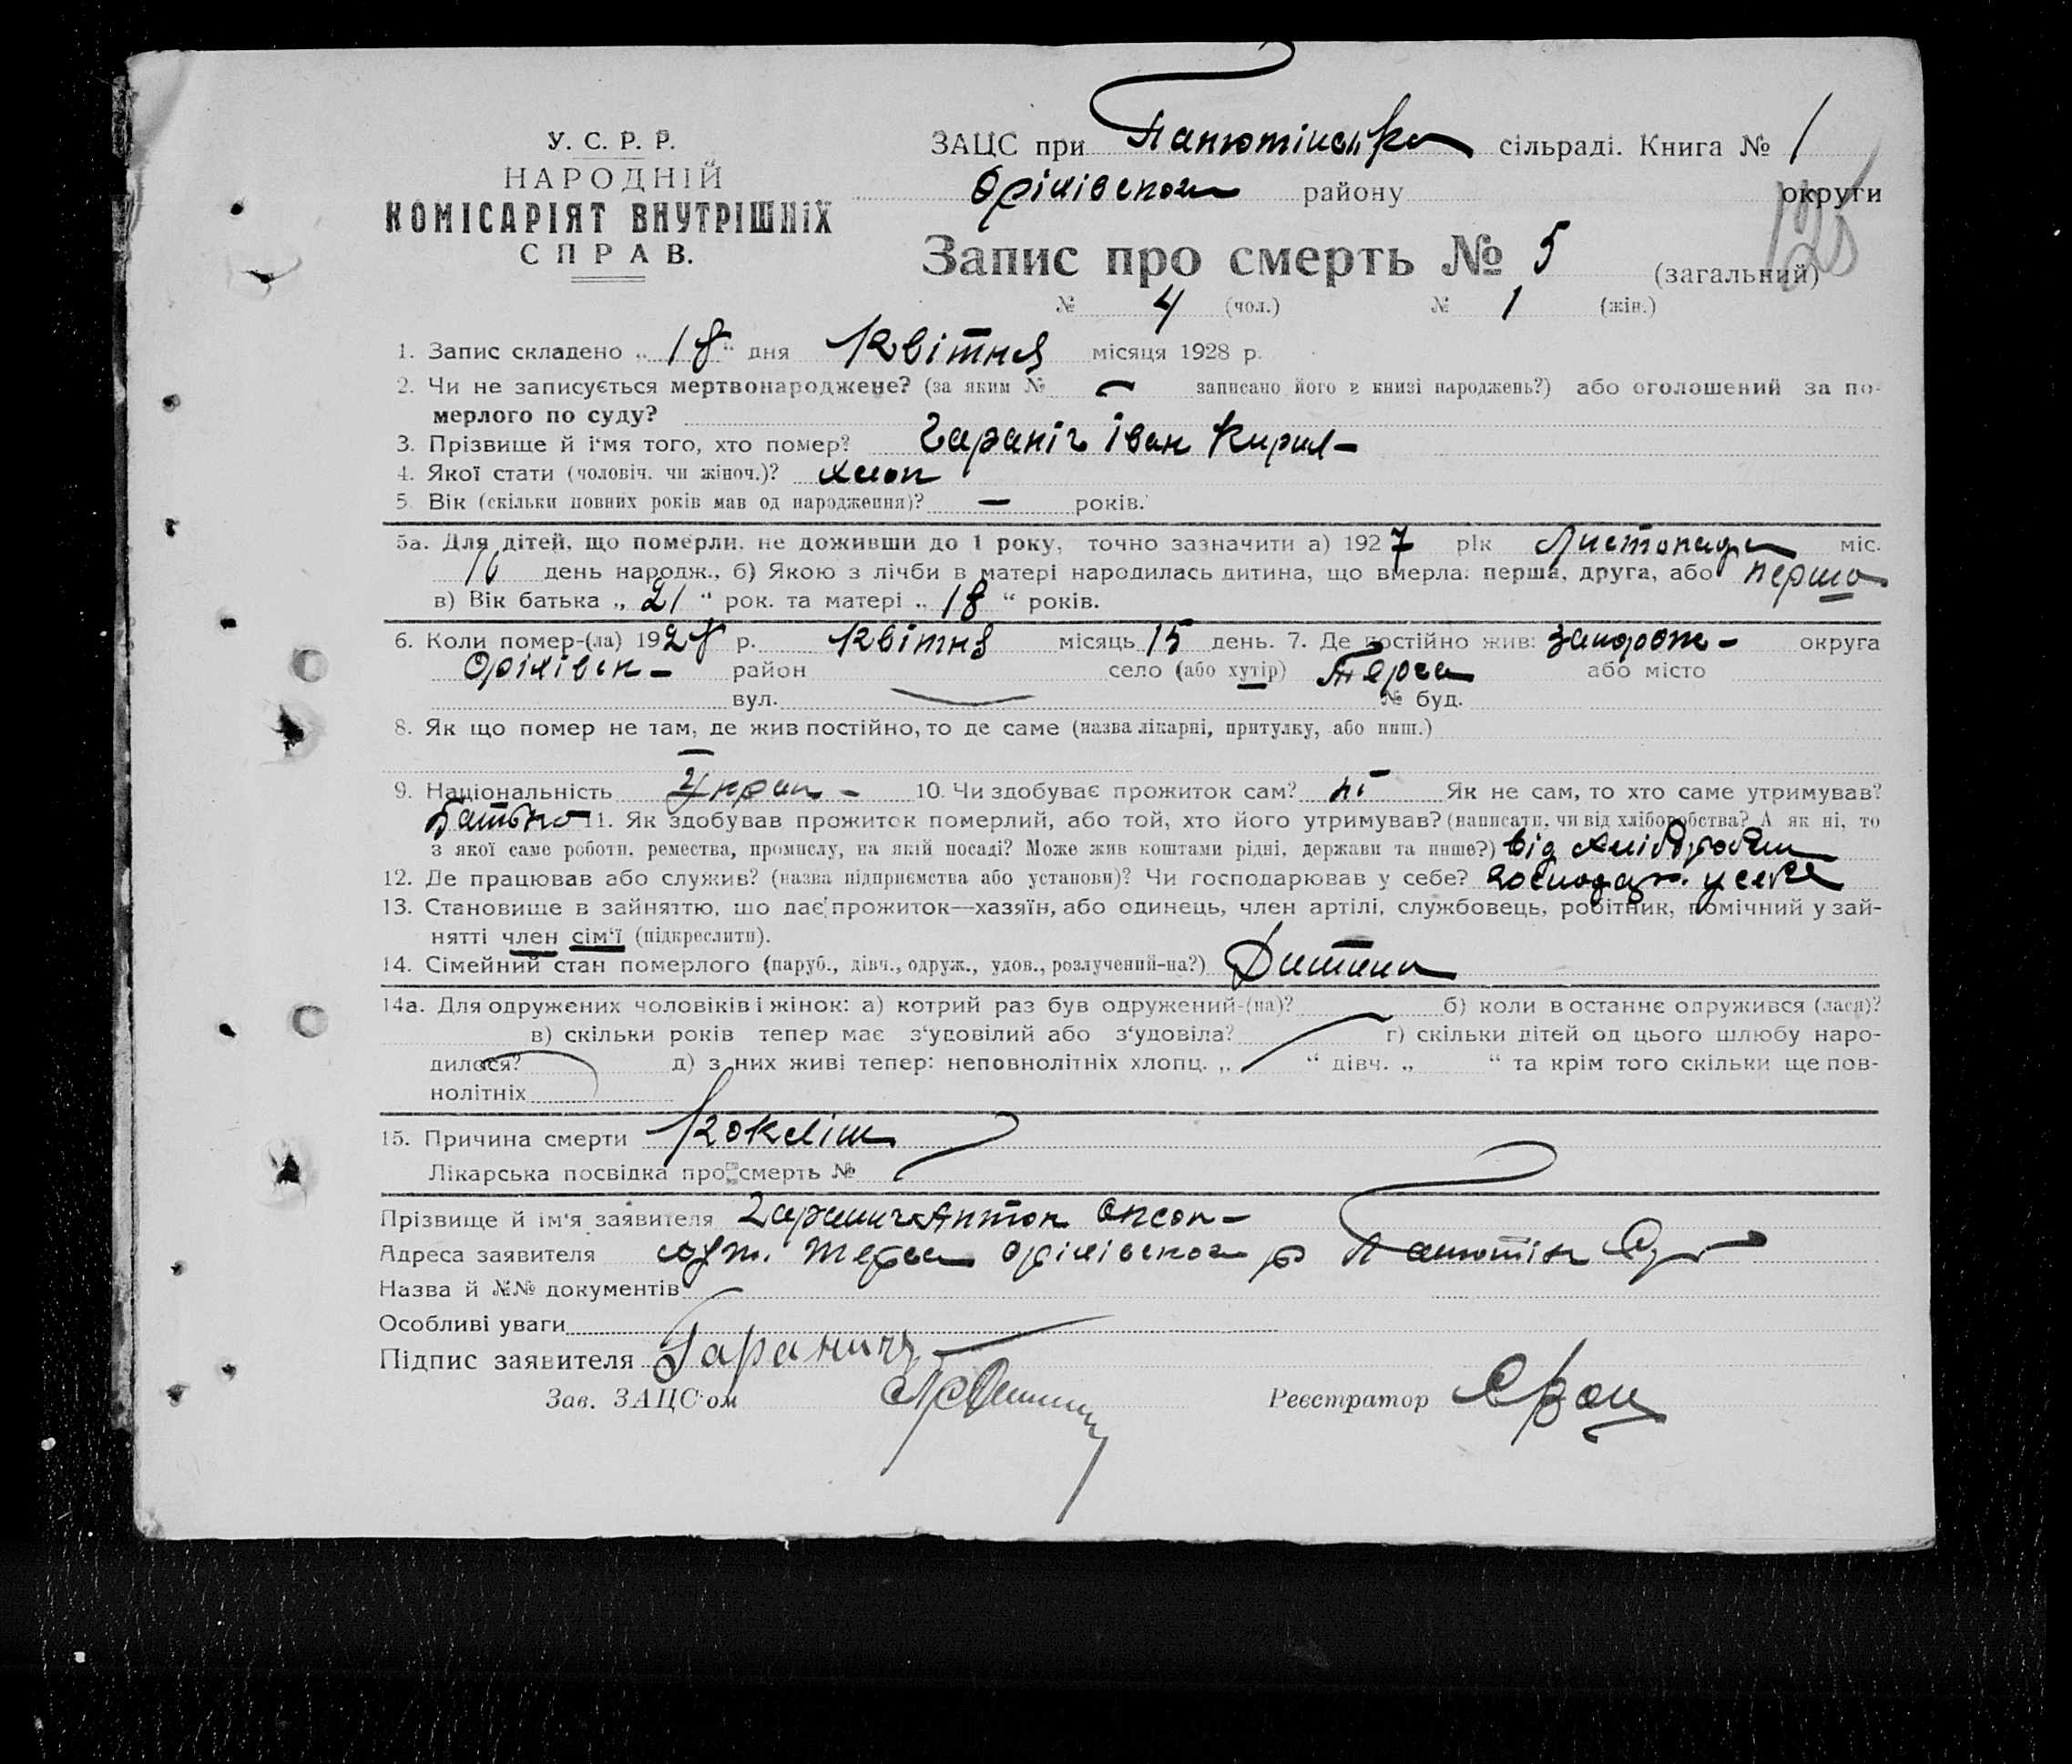 У. С. Р. Р.
НАРОДНІЙ
КОМІСАРІЯТ ВНУТРІШНІХ
СПРАВ.
ЗАЦС при Панютінська сільраді. Книга № 1
Оріхівського району округи
125
Запис про смерть № 5 (загальний)
№ 4 (чол.) № 1 (жін.)
1. Запис складено „ 18 “ дня Квітня місяця 1928 р.
2. Чи не записується мертвонароджене? (за яким № – записано його в книзі народжень?) або оголошений за по-
мерлого по суду?
3. Прізвище й і'мя того, хто помер? Гараніч Іван Кирил –
4. Якої стати (чоловіч. чи жіноч.)? хлоп
5. Вік (скільки повних років мав од народження)? — років.
5а. Для дітей, що померли, не доживши до 1 року, точно зазначити а) 1927 рік Листопада міс.
день народж., б) Якою з лічби в матері народилась дитина, що вмерла: перша, друга, або перша
в) Вік батька „ 21 “ рок. та матері „ 18 “ років.
6. Коли помер-(ла) 1928 р. Квітня місяць 15 день. 7. Де постійно жив: Запорож – округа
Оріхівск – район село (або хутір) Терса або місто
вул. № буд.
8. Як що помер не там, де жив постійно, то де саме (назва лікарні, притулку, або инш.)
9. Національність Украін – 10. Чи здобуває прожиток сам? ні Як не сам, то хто саме утримував?
Батько 11. Як здобував прожиток померлий, або той, хто його утримував? (написати, чи від хліборобства? А як ні, то
з якої саме роботи, ремества, промислу, на якій посаді? Може жив коштами рідні, держави та инше?) від хлібороб
12. Де працював або служив? (назва підприємства або установи)? Чи господарював у себе? господар. у себе
13. Становище в зайняттю, що дає прожиток—хазяїн, або одинець, член артілі, службовець, робітник, помічний у зай-
нятті член сім'ї (підкреслити).
14. Сімейний стан померлого (паруб., дівч., одруж., удов., розлучений-на?) Дитина
14а. Для одружених чоловіків і жінок: а) котрий раз був одружений-(на)? б) коли востаннє одружився (лася)?
в) скільки років тепер має з'удовілий або з'удовіла? г) скільки дітей од цього шлюбу наро-
дилося? д) з них живі тепер: неповнолітніх хлопц. „ “ дівч. „ “ та крім того скільки ще пов-
нолітніх
15. Причина смерти Коклюш
Лікарська посвідка про смерть №
Прізвище й ім'я заявителя Гаранич Антон
Адреса заявителя хут. Терса Оріхівського р Панютін
Назва й №№ документів
Особливі уваги
Підпис заявителя Гаранич
Зав. ЗАЦС'ом Реєстратор